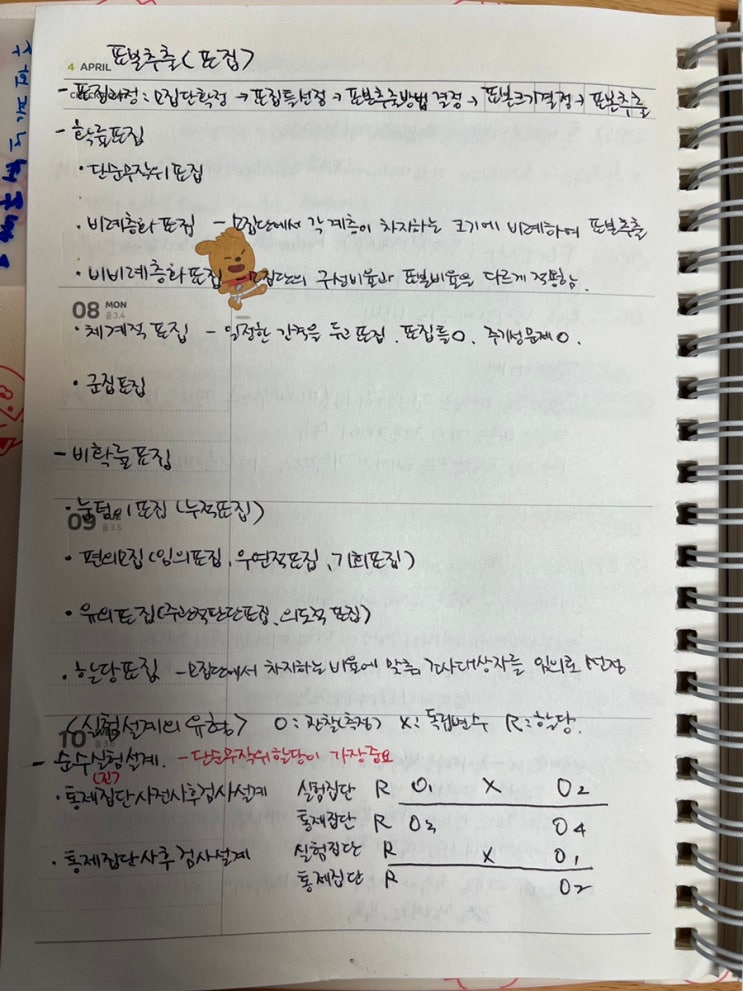 4 APRIL 표본추출(표집)
- 표집과정: 모집단확정 → 표집틀선정 → 표본추출방법 결정 → 표본크기결정 → 표본추출
- 확률표집
· 단순무작위표집
· 비례층화표집 - 모집단에서 각 계층이 차지하는 크기에 비례하여 표본추출
· 비비례층화표집 - 모집단의 구성비율과 표본비율을 다르게 적용함.
08 MON
음3.4
· 체계적표집 - 일정한 간격을 두고 표집. 표집틀O. 주기성문제O.
· 군집표집
- 비확률표집
09
음3.5
· 눈덩이표집(누적표집)
· 편의모집(임의표집, 우연적표집, 기회표집)
· 유의표집(주관적판단표집, 의도적 표집)
· 할당표집 - 모집단에서 차지하는 비율에 맞춤, 조사대상자를 임의로 선정
<실험설계의 유형> O: 관찰(측정) X: 독립변수 R: 할당.
10
- 순수실험설계. - 단순무작위할당이 가장중요
(진)
· 통제집단사전사후검사설계 실험집단 R O1 X O2
통제집단 R O3 O4
· 통제집단사후검사설계 실험집단 R X O1
통제집단 R O2